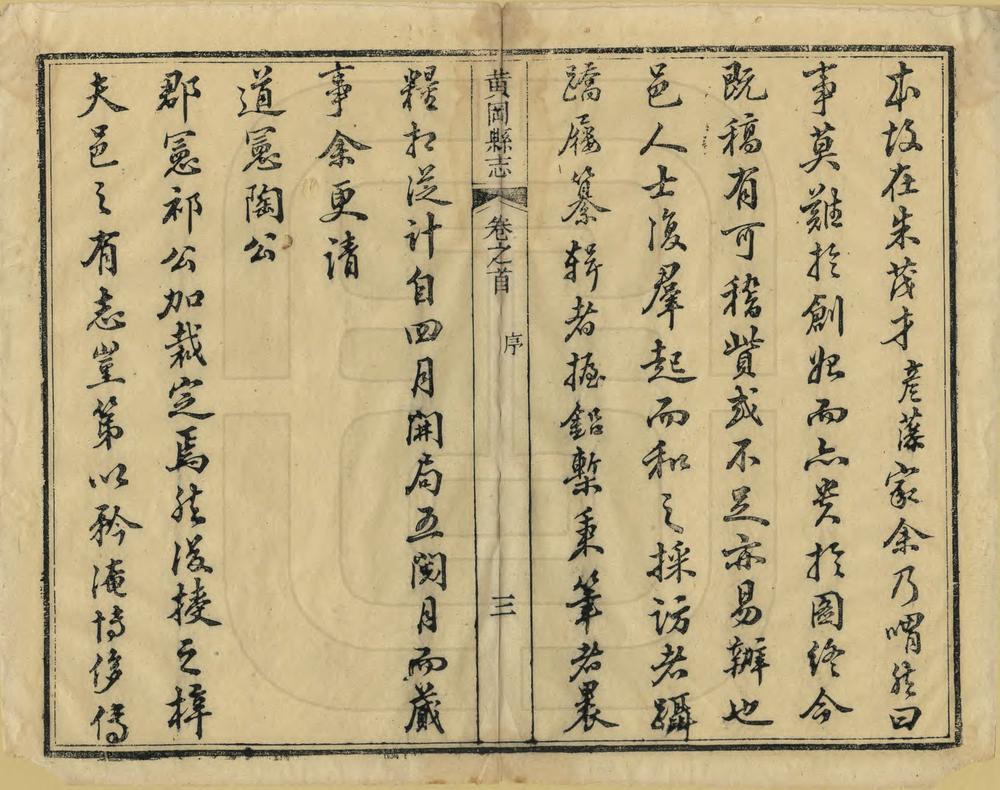 本故在朱茂才彥藻家余乃喟然曰
事莫難於創始而亦貴於圖終今
既稿有可稽貲或不足亦易辦也
邑人士復羣起而和之採訪者躡
蹻屩纂辑者握鉛槧秉筆者裹
黄岡縣志 卷之首 序 三
糧相從計自四月開局五閱月而蕆
事余更請
道憲陶公
郡憲祁公加裁定焉然後授之梓
夫邑之有志豈第以矜淹博侈傳